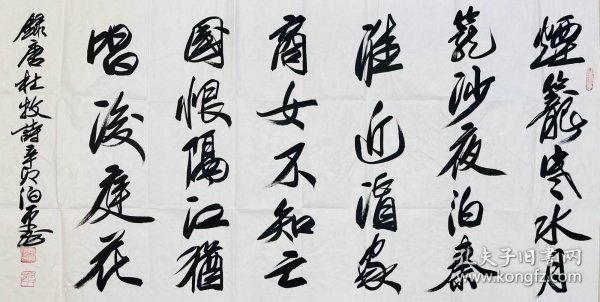 煙籠寒水月
籠沙夜泊秦
淮近酒家
商女不知亡
國恨隔江猶
唱後庭花
錄唐杜牧詩辛卯
孔夫子旧书网
www.kongfz.com